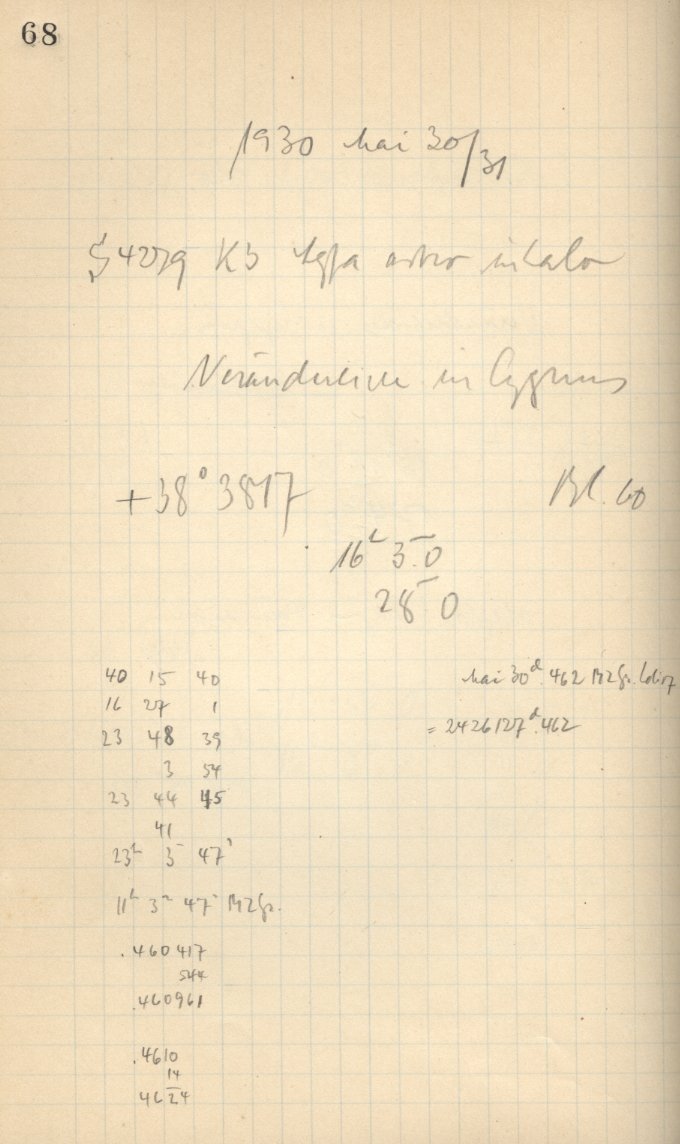 68
1930 Mai 30/31
S 4279 K3 Agfa astro
Veränderliche in Cygnus
+38° 3817 Bl. 60
16h 3.0
28 0
40 15 40
16 27 1
23 48 39
3 54
23 44 45
41
23h 3 47s
11h 3m 47s MZGr.
.460417
544
.460961
.4610
14
4624
Mai 30d.462 MZGr.
= 2426127d.462